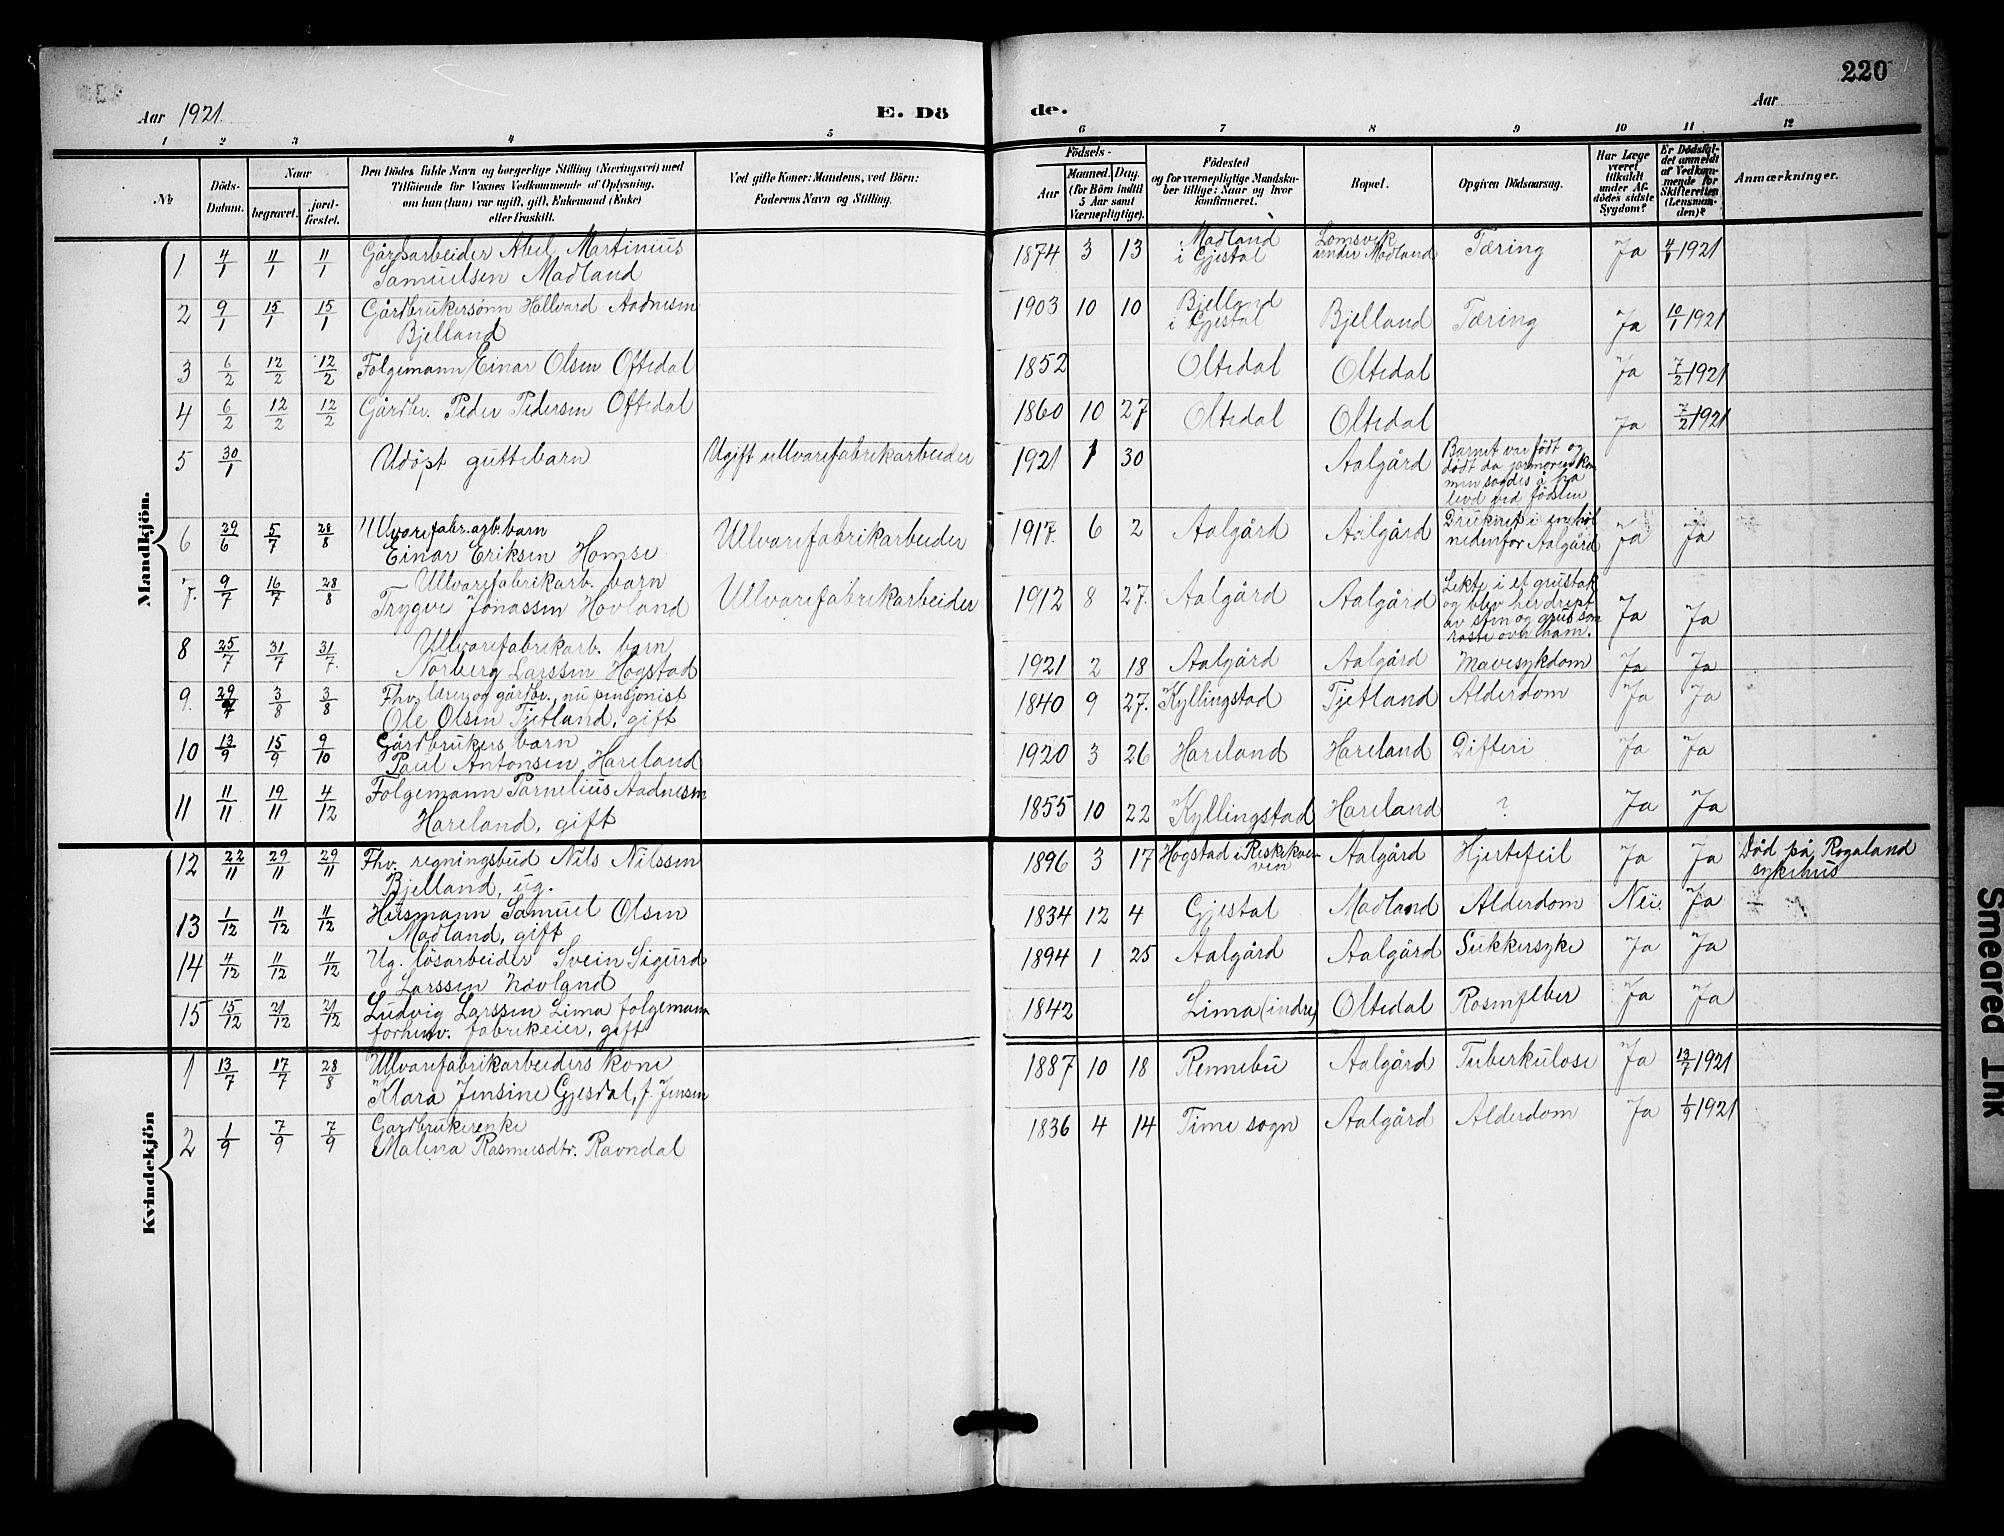 220
Aar 1921. E. Dö
de. Aar
1 2 3 4 5
6 7 8 9 10 11 12
No
Döds-Datum.
Naar
begravet.
jord-fæstet.
Den Dödes fulde Navn og borgerlige Stilling (Næringsvei) med
Tilföiende for Voxnes Vedkommende af Oplysning,
om han (hun) var ugift, gift, Enkemand (Enke)
eller fraskilt.
Ved gifte Koner: Mandens, ved Börn:
Faderens Navn og Stilling.
Födsels-
Aar
Maaned. Dag.
(for Börn indtil
5 Aar samt
Værnepligtige).
Födested
og for værnepligtige Mandska-
ber tillige: Naar og hvor
konfirmeret.
Bopæl.
Opgiven Dödsaarsag.
Har Læge
været
tilkaldt
under Af-
dödes sidste
Sygdom?
Er Dödsfal-
det anmeldt
af Vedkom-
mende for
Skifteretten
(Lensman-
den)?
Anmærkninger.
Mandkjön.
1 4/1 11/1 11/1 Gårdsarbeider Abel Martinius
Samuelsen Madland
1874 3 13 Madland
i Gjestal
Lomsvik
under Madland
Tæring Ja 4/1 1921
2 9/1 15/1 15/1 Gårdbrukersønn Hallvard Aadnesen
Bjelland
1903 10 10 Bjelland
i Gjestal
Bjelland Tæring Ja 10/1 1921
3 6/2 12/2 12/2 Folgemann Einar Olsen Oftedal 1852 Oltedal Oltedal Ja 7/2 1921
4 6/2 12/2 12/2 Gårdbr. Peder Pedersen Oftedal 1860 10 27 Oltedal Oltedal Ja 7/2 1921
5 30/1 Udøpt guttebarn Ugift ullvarefabrikarbeider 1921 1 30 Aalgård
Barnet var født og
dødt da jormoren kom
men sagdes å ha
levd ved fødslen
6 29/6 5/7 28/8 Ulvarefabr.arb. barn
Einar Eriksen Homse
Ullvarefabrikarbeider 1917. 6 2 Aalgård Aalgård
Druknet i en høl
nedenfor Aalgård
Ja Ja
7. 9/7 16/7 28/8 – Ullvarefabrikarb. barn
Trygve Jonassen Hovland
Ullvarefabrikarbeider 1912 8 27. Aalgård Aalgård
Lekte i et grustak
og blev her drept
av sten og grus som
raste over ham.
Ja Ja
8 25/7 31/7 31/7. Ullvarefabrikarb. barn
Norberg Larssen Hogstad
1921 2 18 Aalgård Aalgård Mavesykdom Ja Ja
9. 29/7 3/8 3/8 Fhv. lærer og gårdbr., nu pensjonist
Ole Olsen Tjetland, gift
1840 9 27. Kyllingstad Tjetland Alderdom Ja Ja
10 13/9 15/9 9/10 Gårdbrukers barn
Paul Antonsen Hareland
1920 3 26 Hareland Hareland Difteri Ja Ja
11 11/11 19/11 4/12 Folgemann Parnelius Aadnesen
Hareland, gift
1855 10 22 Kyllingstad Hareland ? Ja Ja
12 22/11 29/11 29/11 Fhv. regningsbud Nils Nilssen
Bjelland, ug.
1896 3 17 Hogstad i
Aalgård Hjertefeil Ja Ja Død på Rogaland
sykehus
13 1/12 11/12 11/12 Husmann Samuel Olsen
Madland, gift
1834 12 4 Gjestal Madland Alderdom Nei. Ja
14 4/12 11/12 11/12 Ug. løsarbeider Svein Sigurd
Larssen Hovland
1894 1 25 Aalgård Aalgård Sukkersyke Ja Ja
15 15/12 21/12 21/12 Ludvig Larssen Lima folgemann
forhenv. fabrikeier, gift
1842 Lima (indre) Oltedal Rosenfeber Ja Ja
Kvindekjön
1 13/7 17/7 28/8 Ullvarefabrikarbeiders kone
Klara Jensine Gjesdal, f. Jensen
1887 10 18 Rennebu Aalgård Tuberkulose Ja 13/7 1921
2 1/9 7/9 7/9 Gardbrukerenke
Malena Rasmusdtr. Ravndal
1836 4 14 Time sogn Aalgård Alderdom Ja 1/9 1921
Smeared Ink